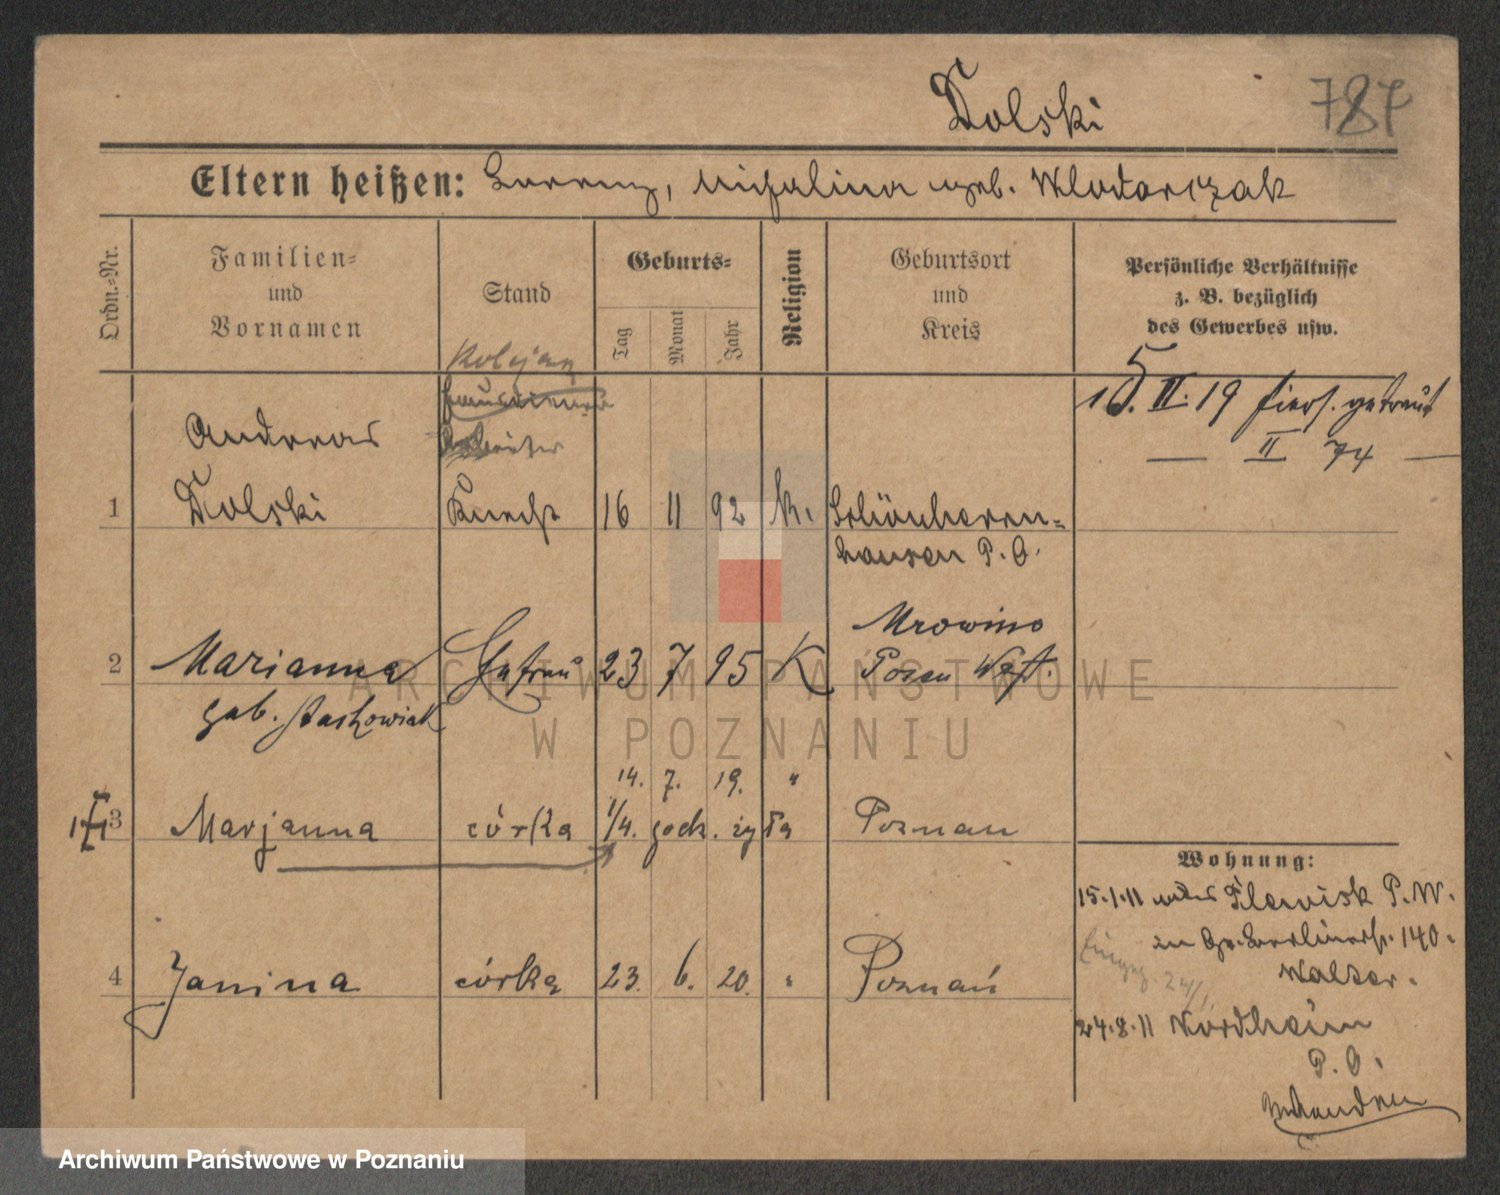 Tolski
787
Eltern heißen: Lorenz, Michalina geb. Wlodarczak
Ordn.-Nr.
Familien-
und
Vornamen
Stand
Geburts-
Tag
Monat
Jahr
Religion
Geburtsort
und
Kreis
Persönliche Verhältnisse
z. B. bezüglich
des Gewerbes usw.
Kolejarz
Arbeiter
15. II. 19 hiers. getraut
— II 74 —
Andreas
1 Tolski Knecht 16 11 92 k. Schönherrn-
hausen P. O.
Mrowino
2 Marianna Ehefrau 23 7 95 K Posen West.
geb. Stachowiak
14. 7. 19. "
3 Marjanna córka 1/4. godz. żyła Poznan
Wohnung:
15.1.11 Plewisk P.W.
Gr. Berlinerstr. 140.
24/1.
Walzer.
4 Janina córka 23. 6. 20. " Poznań
24.8.11 Nordheim
P. O.
ARCHIWUM PAŃSTWOWE
W POZNANIU
Archiwum Państwowe w Poznaniu